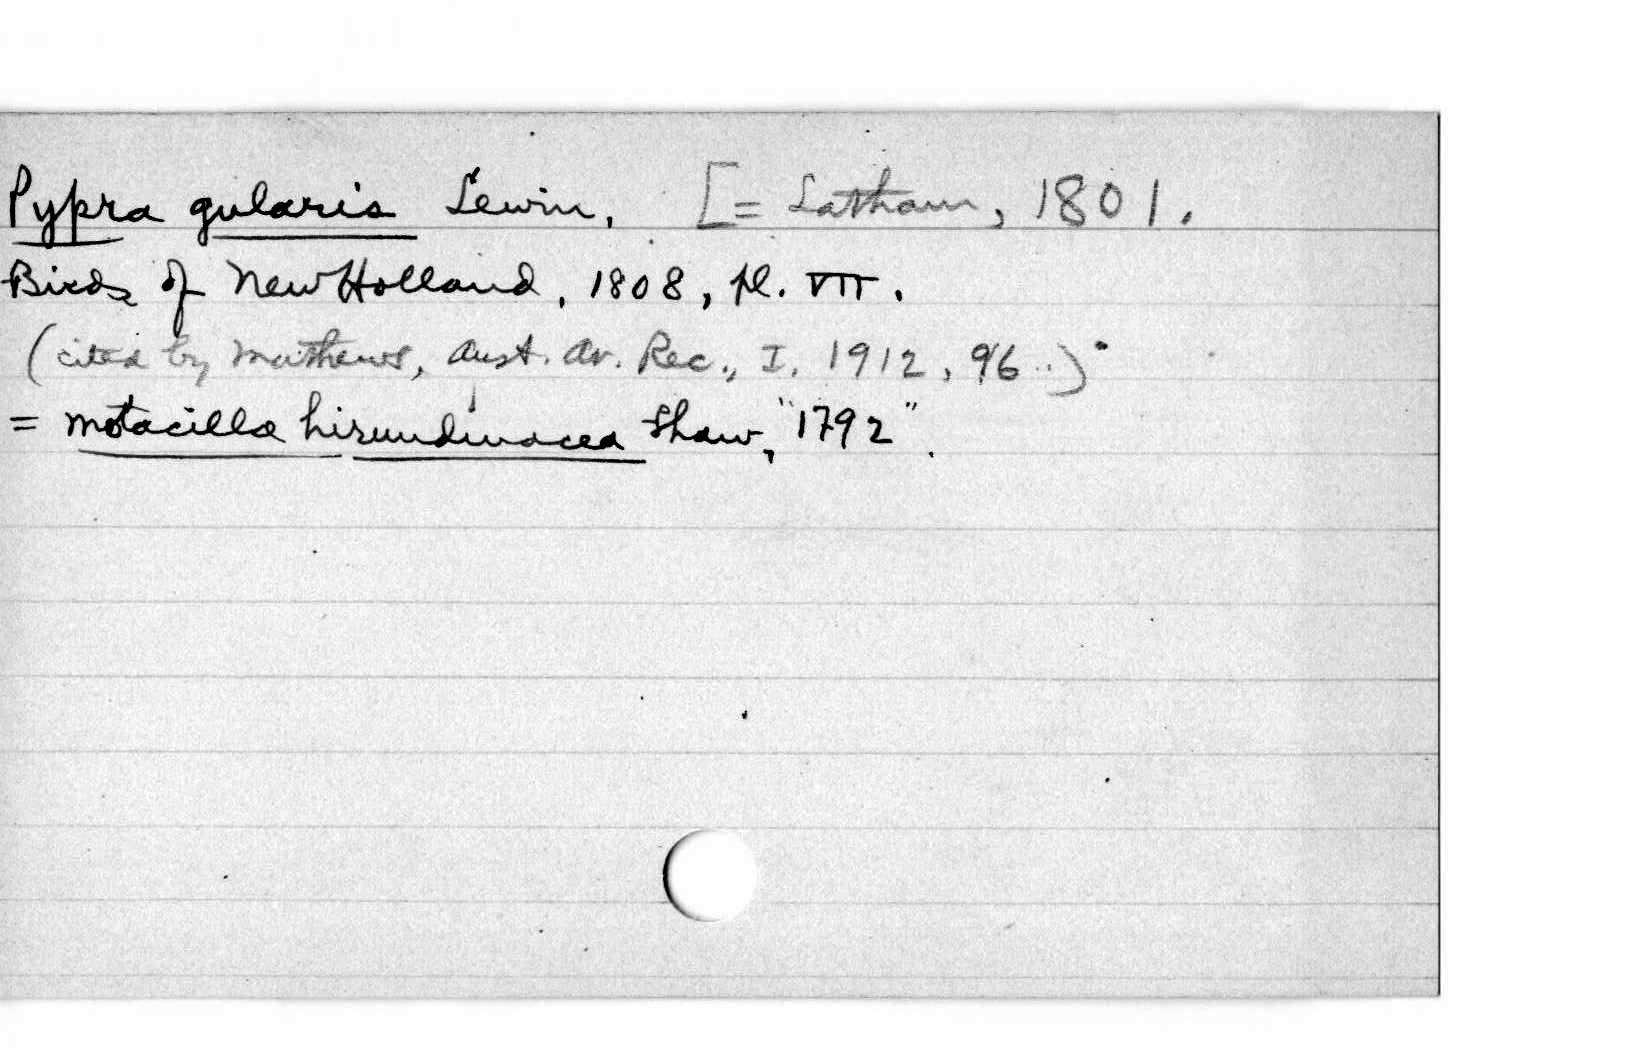 Pypra gularis Lewin. [= Latham, 1801.
Birds of New Holland, 1808, pl. VII.
(cited by Mathews, Aust. Av. Rec., I, 1912, 96..)
= Motacilla hirundinacea Shaw, "1792".